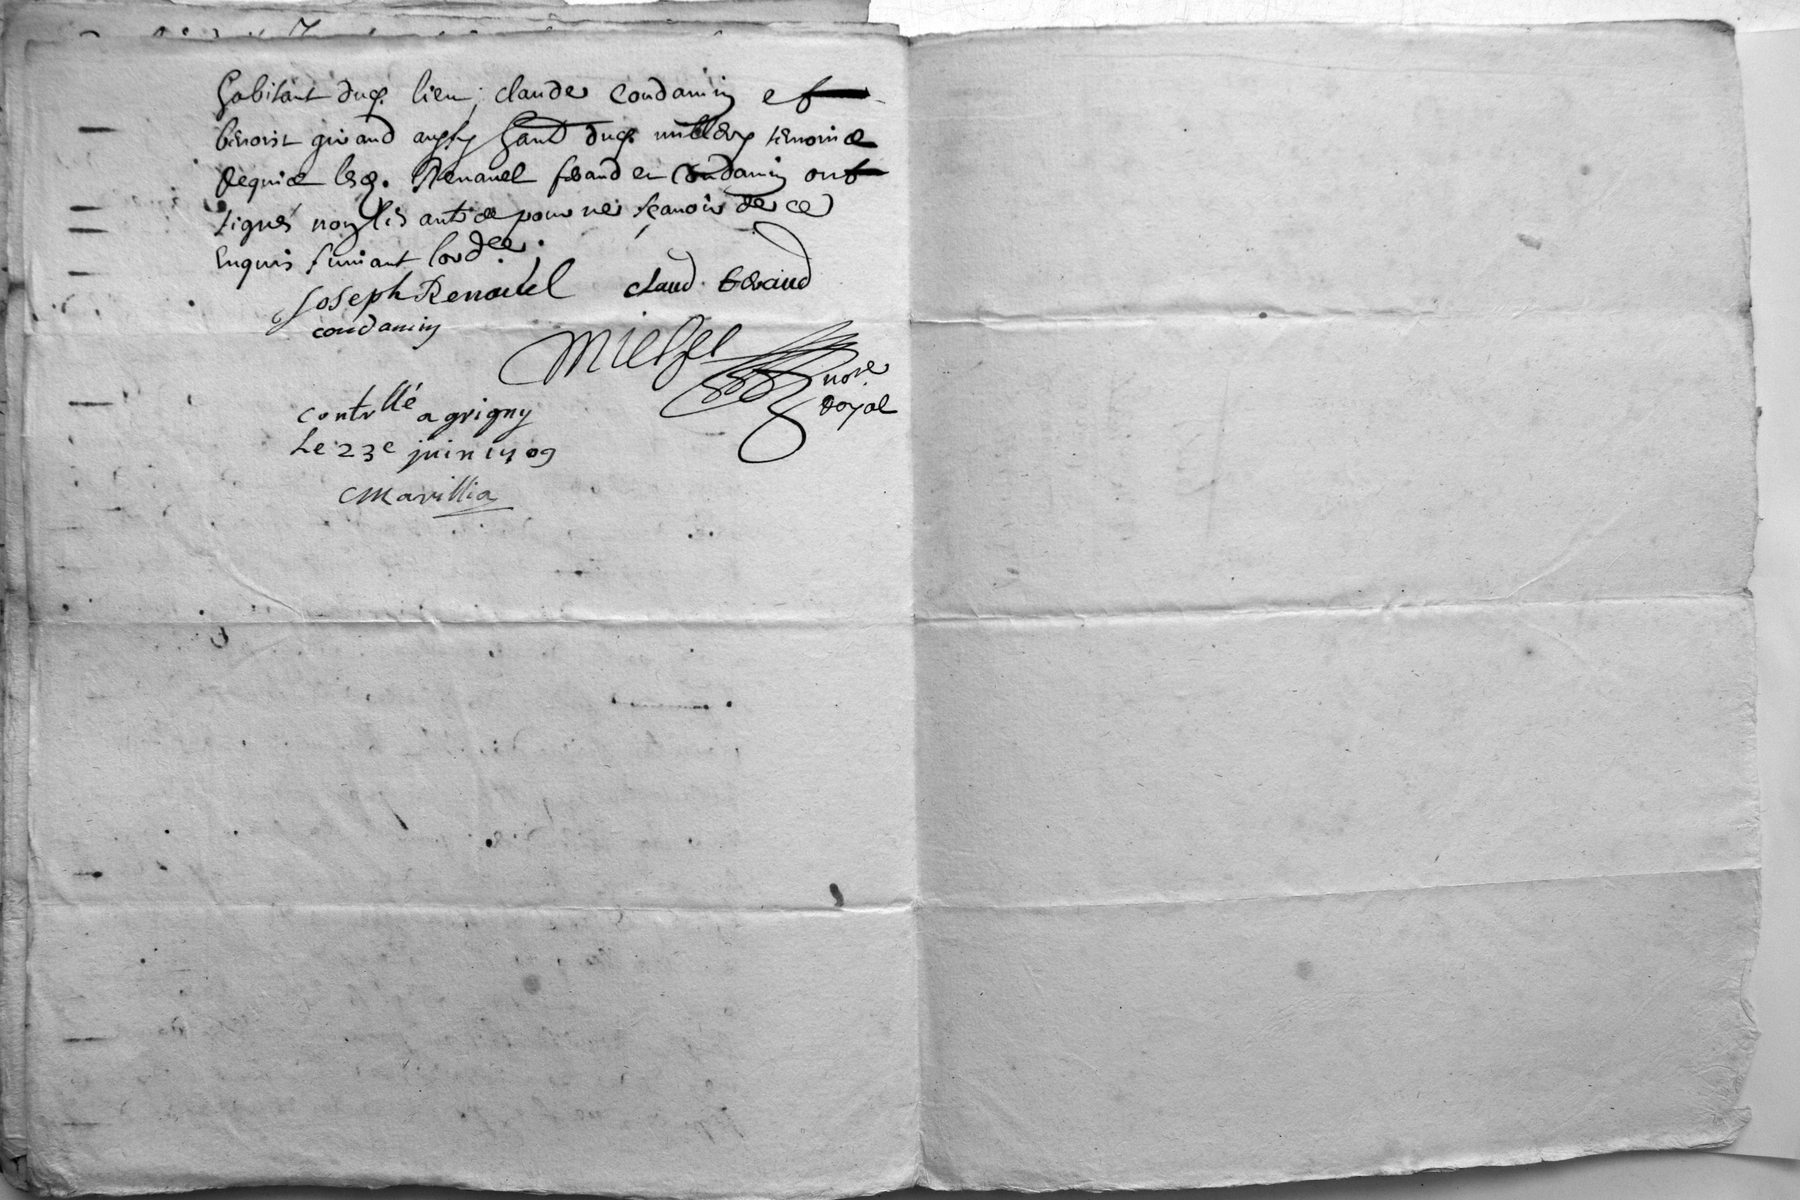 habitant dud. lieu, claude Condamin et
benoist giraud aussy habt dud. millery temoins
Requis lesd. Renavel feraud et Condamin ont
signes non les autres pour ne sçavoir de ce
Enquis suivant lord.ce
Joseph Renavel claud. feraud
condamin
Michel
no.re
Royal
contrllé a grigny
Le 23e juin 1709
Mavillia